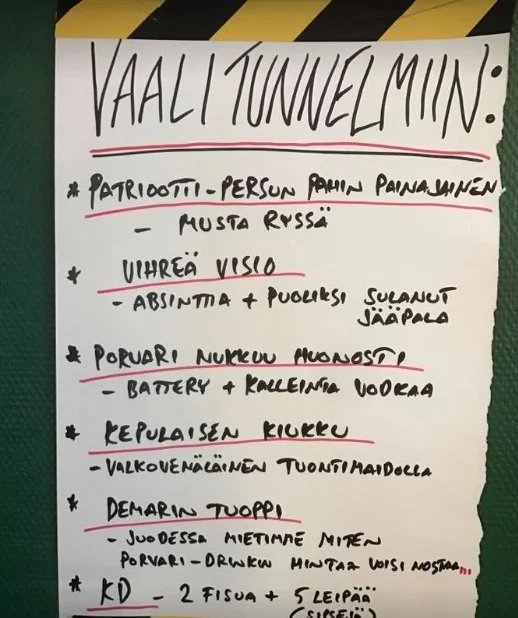 VAALITUNNELMIIN:
* PATRIOOTTI-PERSUN PAHIN PAINAJAINEN
- MUSTA RYSSÄ
* VIHREÄ VISIO
- ABSINTTIA + PUOLIKSI SULANUT
JÄÄPALA
* PORVARI NUKKUU HUONOSTI
- BATTERY + KALLEINTA VODKAA
* KEPULAISEN KIUKKU
- VALKOVENÄLÄINEN TUONTIMAIDOLLA
* DEMARIN TUOPPI
- JUODESSA MIETIMME MITEN
PORVARI-DRINKIN HINTAA VOISI NOSTAA...
* KD - 2 FISUA + 5 LEIPÄÄ
(SIPSEJÄ)